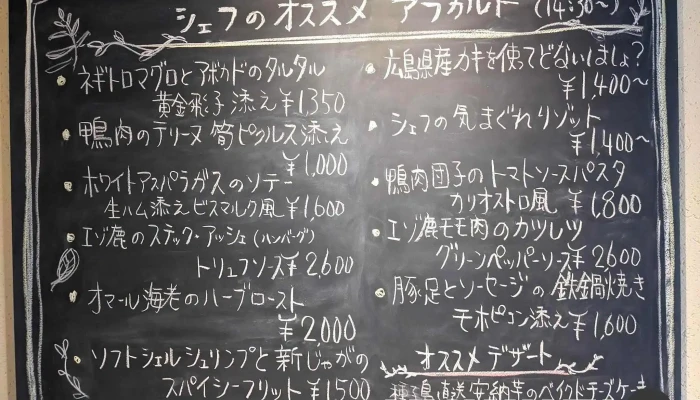 シェフのオススメ アラカルト (14:30〜)
・ネギトロマグロとアボカドのタルタル
黄金飛子添え ¥1,350
・鴨肉のテリーヌ 筍ピクルス添え
¥1,000
・ホワイトアスパラガスのソテー
生ハム添え ビスマルク風 ¥1,600
・エゾ鹿のステック・アッシェ(ハンバーグ)
トリュフソース ¥2,600
・オマール海老のハーブロースト
¥2,000
・ソフトシェルシュリンプと新じゃがの
スパイシーフリット ¥1,500
・広島県産カキを使ってどないしましょ?
¥1,400〜
・シェフの気まぐれリゾット
¥1,400〜
・鴨肉団子のトマトソースパスタ
カリオストロ風 ¥1,800
・エゾ鹿モモ肉のカツレツ
グリーンペッパーソース ¥2,600
・豚足とソーセージの鉄鍋焼き
モホピコン添え ¥1,600
オススメデザート
種子島直送 安納芋のベイクドチーズケーキ